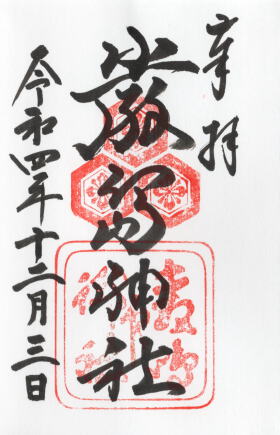 奉拝
厳島神社
令和四年十二月三日